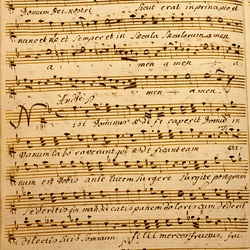 Domum Dei nostri Sicut erat in principio et
nunc et Semper et in Sæcula Sæculorum amen
a : men a men a
a : men a men.
Nisi Dominus ædifi caperit Domū in
Vanum la bo raverunt qui ædi ficant eam
num est Vobis ante lucem Surgere Surgite postquam
Sederitis qui mandu catis panem do loris cum dederit
dilectis Suis Somnum merces fructus